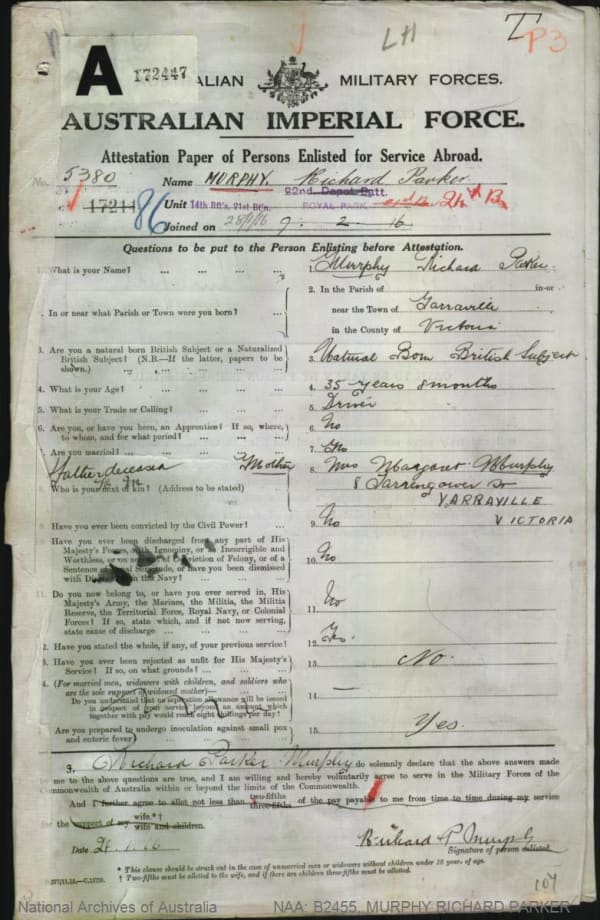 LH
P3
A 172447
ALIAN MILITARY FORCES.
AUSTRALIAN IMPERIAL FORCE.
Attestation Paper of Persons Enlisted for Service Abroad.
No. 5380 Name MURPHY. Richard Parker
22nd. Depot Batt.
17211 86 Unit 14th Rfts, 21st Btn. ROYAL PARK
Joined on 28/1/16 9. 2. 16
Questions to be put to the Person Enlisting before Attestation.
1. What is your Name? ... ... ... ... 1. Murphy Richard Parker
2. In the Parish of in or
. In or near what Parish or Town were you born? ... near the Town of Yarraville
in the County of Victoria
3. Are you a natural born British Subject or a Naturalized
British Subject? (N.B.—If the latter, papers to be
shown.) 3. Natural Born British Subject
4. What is your Age? 4. 35 years 8 months
5. What is your Trade or Calling? 5. Driver
6. Are you, or have you been, an Apprentice? If so, where,
to whom, and for what period? 6. No
Are you married? 7. No
Father deceased Mother 8. Mrs Margaret Murphy
Who is your next of kin? (Address to be stated) 8 Tarrengower St
YARRAVILLE
VICTORIA
Have you ever been convicted by the Civil Power? ... 9. No
Have you ever been discharged from any part of His
Majesty's Forces, with Ignominy, or as Incorrigible and
Worthless, or on account of Conviction of Felony, or of a
Sentence of Penal Servitude, or have you been dismissed
with Disgrace from the Navy? 10. No
Do you now belong to, or have you ever served in, His
Majesty's Army, the Marines, the Militia, the Militia
Reserve, the Territorial Force, Royal Navy, or Colonial
Forces? If so, state which, and if not now serving,
state cause of discharge ... ... ... 11. No
2. Have you stated the whole, if any, of your previous service? 12. Yes.
3. Have you ever been rejected as unfit for His Majesty's
Service? If so, on what grounds? ... 13. No.
4. (For married men, widowers with children, and soldiers who
are the sole support of widowed mother)—
Do you understand that no separation allowance will be issued
in respect of your service beyond an amount which
together with pay would reach eight shillings per day? 14. —
Are you prepared to undergo inoculation against small pox
and enteric fever? 15. Yes.
3, Richard Parker Murphy do solemnly declare that the above answers made
by me to the above questions are true, and I am willing and hereby voluntarily agree to serve in the Military Forces of the
Commonwealth of Australia within or beyond the limits of the Commonwealth.
And I further agree to allot not less than two-fifths three-fifths of the pay payable to me from time to time during my service
for the support of my wife.*† wife and children.
Date Richard P Murphy
Signature of person enlisted.
* This clause should be struck out in the case of unmarried men or widowers without children under 18 years of age.
† Two-fifths must be allotted to the wife, and if there are children three-fifths must be allotted.
104
National Archives of Australia NAA: B2455, MURPHY RICHARD PARKER